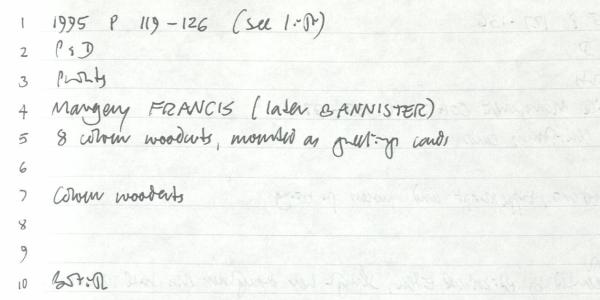 1 1995 P 119-126 (see
2 P & D
3 Prints
4 Margery FRANCIS (later BANNISTER)
5 8 colour woodcuts, mounted as greetings cards
6
7 Colour woodcuts
8
9
10